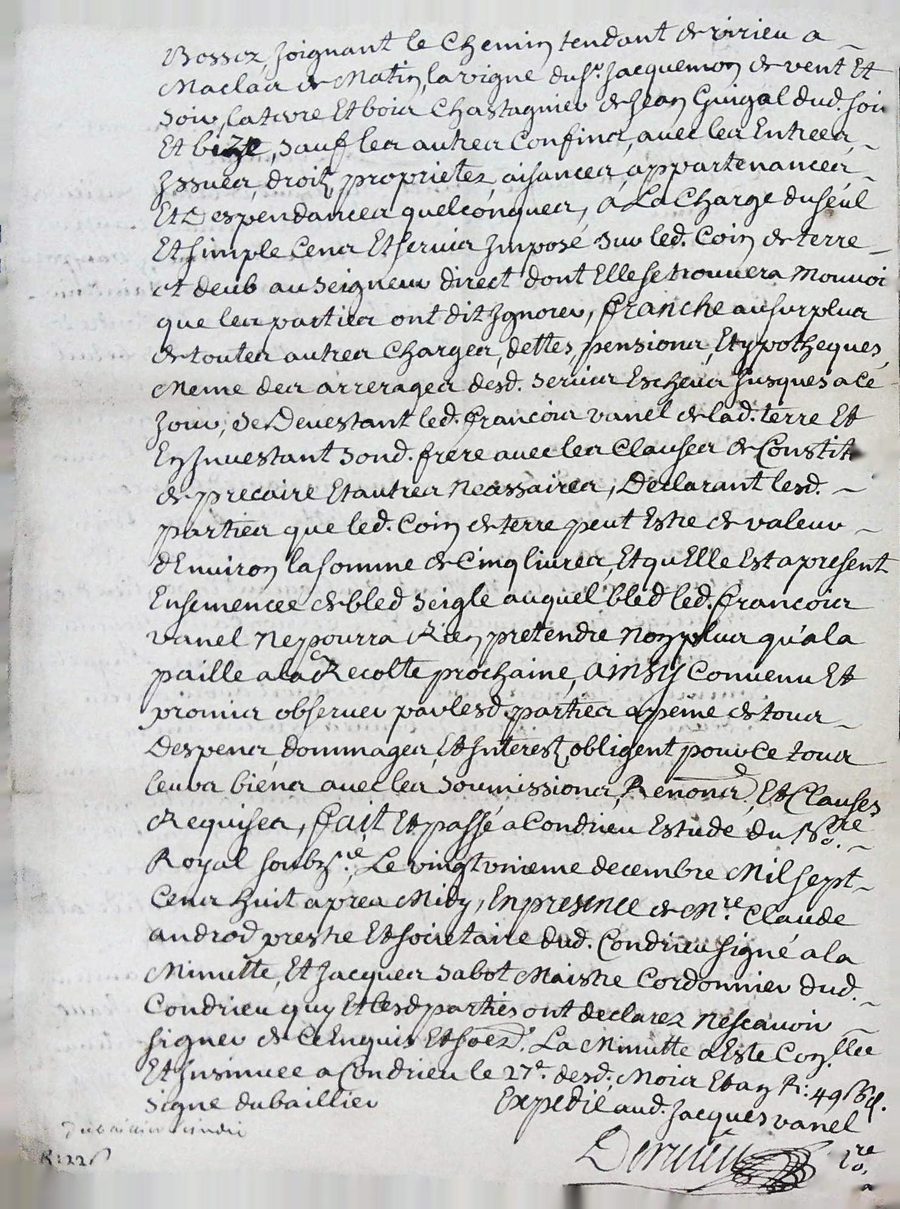 Bossez, Joignant le Chemin tendant de virieu a
Maclas de Matin, la vigne du Sr. Jacquemon de vent Et
Soir, la terre Et bois Chastagnier de Jean Guigal dud. soir
Et bize, sauf les autres Confins, avec les Entrees,
Issues, droits, proprietez, aisances, appartenances
Et Despendances quelconques, a La Charge du séul
Et simple Cens Et servis Imposé sur led. Coin de terre
et deub au Seigneur direct dont Elle se trouvera Mouvoir
que les parties ont dit Ignorer, franche au surplus
de toutes autres Charges, dettes, pensions, Et ypotheques,
Meme des arrerages desd. servis Escheus Jusques a Ce
Jour, se Devestant led. francois vanel de lad. terre Et
En Investant sond. frere avec les Clauses de Constit.
de precaire Et autres Necessaires, Declarant lesd.
parties que led. Coin de terre peut Estre de valeur
d'Environ la somme de Cinq livres, Et qu'Elle Est a present
Ensemencee de bled seigle auquel bled led. francois
vanel Ne pourra Rien pretendre Non plus qu'a la
paille a la Recolte prochaine, ainsy Convenu Et
promis observer par lesd. parties a peine de tous
Despens, dommages, Et Interests, obligent pour Ce tous
leurs biens avec les soumissions, Renons, Et Clauses
Requises, fait Et passé a Condrieu Estude du No.re
Royal soubz.né, Le vingt unieme decembre Mil sept
Cens huit apres Midy, En presence de Mre. Claude
androd prestre Et societaire dud. Condrieu signé a la
Minutte, Et Jacques Sabot Maistre Cordonnier dud.
Condrieu quy Et lesd. parties ont declarez Ne scavoir
signer de Ce Enquis Et La Minutte a Este Con.llee
Et Insinuee a Condrieu le 27e. desd. Mois Et an R: 49
signe dubaillier Expedié aud. Jacques vanel
R: 22 s
No.re